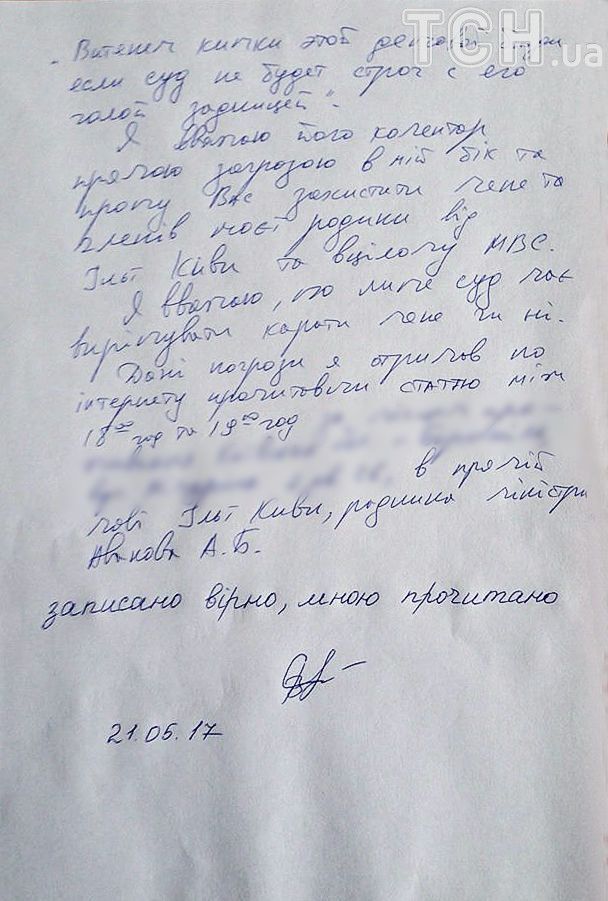 ТСН.ua
"Витянем кишки этой
если суд не будет строг с его
голой задницей".
Я вважаю його коментар
прямою загрозою в мій бік та
прошу Вас захистити мене та
членів моєї родини від
Іллі Киви та вцілому МВС.
Я вважаю, що лише суд має
вирішувати карати мене чи ні.
Дані погрози я отримав по
інтернету прочитавши статтю між
18⁰⁰ год та 19⁰⁰ год
в прямій
мові Іллі Киви, радника міністра
Авакова А.Б.
записано вірно, мною прочитано
21.05.17